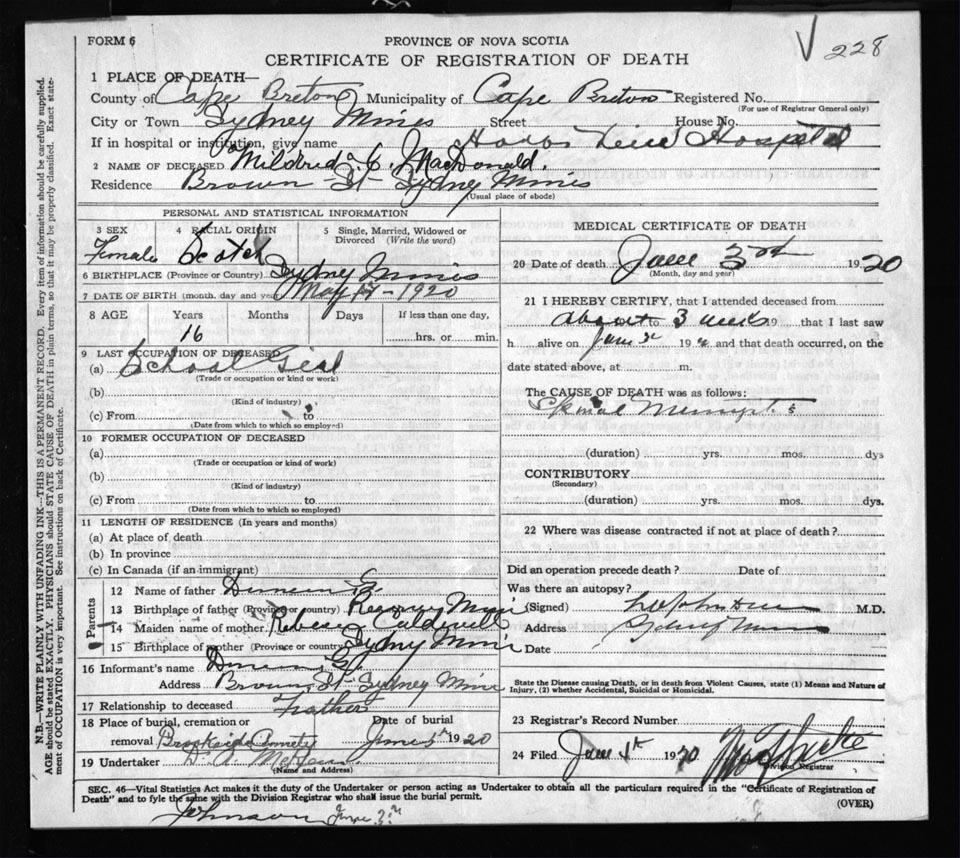 FORM 6
PROVINCE OF NOVA SCOTIA
228
CERTIFICATE OF REGISTRATION OF DEATH
1 PLACE OF DEATH—
County of Cape Breton Municipality of Cape Breton Registered No.
(For use of Registrar General only)
City or Town Sydney Mines Street House No.
If in hospital or institution, give name Hospital
2 NAME OF DECEASED Mildred C. MacDonald.
Residence Brown St Sydney Mines
(Usual place of abode)
PERSONAL AND STATISTICAL INFORMATION
3 SEX 4 RACIAL ORIGIN 5 Single, Married, Widowed or Divorced (Write the word)
Female Scotch
6 BIRTHPLACE (Province or Country) Sydney Mines
7 DATE OF BIRTH (month, day and year) May 17-1920
8 AGE Years Months Days If less than one day,
16 hrs. or min.
9 LAST OCCUPATION OF DECEASED
(a) School Girl
(Trade or occupation or kind or work)
(b)
(Kind of industry)
(c) From to
(Date from which to which so employed)
10 FORMER OCCUPATION OF DECEASED
(a)
(Trade or occupation or kind of work)
(b)
(Kind of industry)
(c) From to
(Date from which to which so employed)
11 LENGTH OF RESIDENCE (In years and months)
(a) At place of death
(b) In province
(c) In Canada (if an immigrant)
Parents
12 Name of father Duncan
13 Birthplace of father (Province or country) Mines
14 Maiden name of mother Rebecca Caldwell
15 Birthplace of mother (Province or country) Sydney Mines
16 Informant's name Duncan
Address Brown St Sydney Mines
17 Relationship to deceased Father
18 Place of burial, cremation or removal Date of burial
Brookside June 5th 1920
19 Undertaker
(Name and Address)
MEDICAL CERTIFICATE OF DEATH
20 Date of death June 3rd 1920
(Month, day and year)
21 I HEREBY CERTIFY, that I attended deceased from
about to 3 weeks 19 that I last saw
h alive on June 19 and that death occurred, on the
date stated above, at m.
The CAUSE OF DEATH was as follows:
(duration) yrs. mos. dys
CONTRIBUTORY
(Secondary)
(duration) yrs. mos. dys.
22 Where was disease contracted if not at place of death?
Did an operation precede death? Date of
Was there an autopsy?
(Signed) M.D.
Address Sydney Mines
Date
State the Disease causing Death, or in death from Violent Causes, state (1) Means and Nature of
Injury, (2) whether Accidental, Suicidal or Homicidal.
23 Registrar's Record Number
24 Filed June 4th 1920
Division Registrar
SEC. 46—Vital Statistics Act makes it the duty of the Undertaker or person acting as Undertaker to obtain all the particulars required in the "Certificate of Registration of
Death" and to fyle the same with the Division Registrar who shall issue the burial permit.
(OVER)
Johnson June
N.B.—WRITE PLAINLY WITH UNFADING INK—THIS IS A PERMANENT RECORD. Every item of information should be carefully supplied.
AGE should be stated EXACTLY. PHYSICIANS should STATE CAUSE OF DEATH in plain terms, so that it may be properly classified. Exact statement of OCCUPATION is very important. See instructions on back of Certificate.